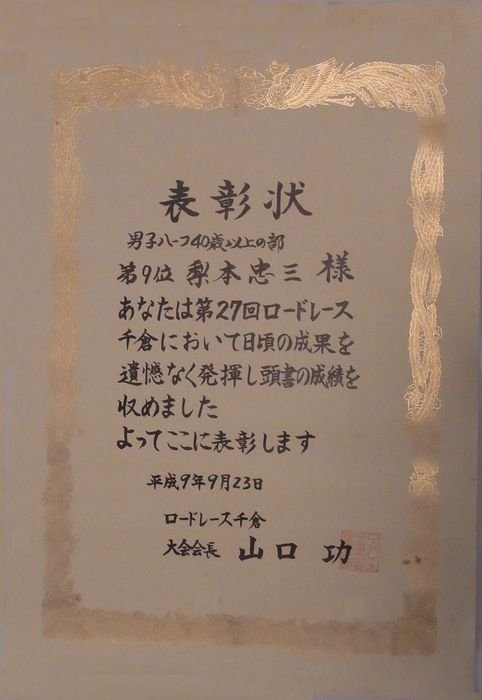 表彰状
男子ハーフ40歳以上の部
第9位 梨本忠三 様
あなたは第27回ロードレース
千倉において日頃の成果を
遺憾なく発揮し頭書の成績を
収めました
よってここに表彰します
平成9年9月23日
ロードレース千倉
大会会長 山口 功